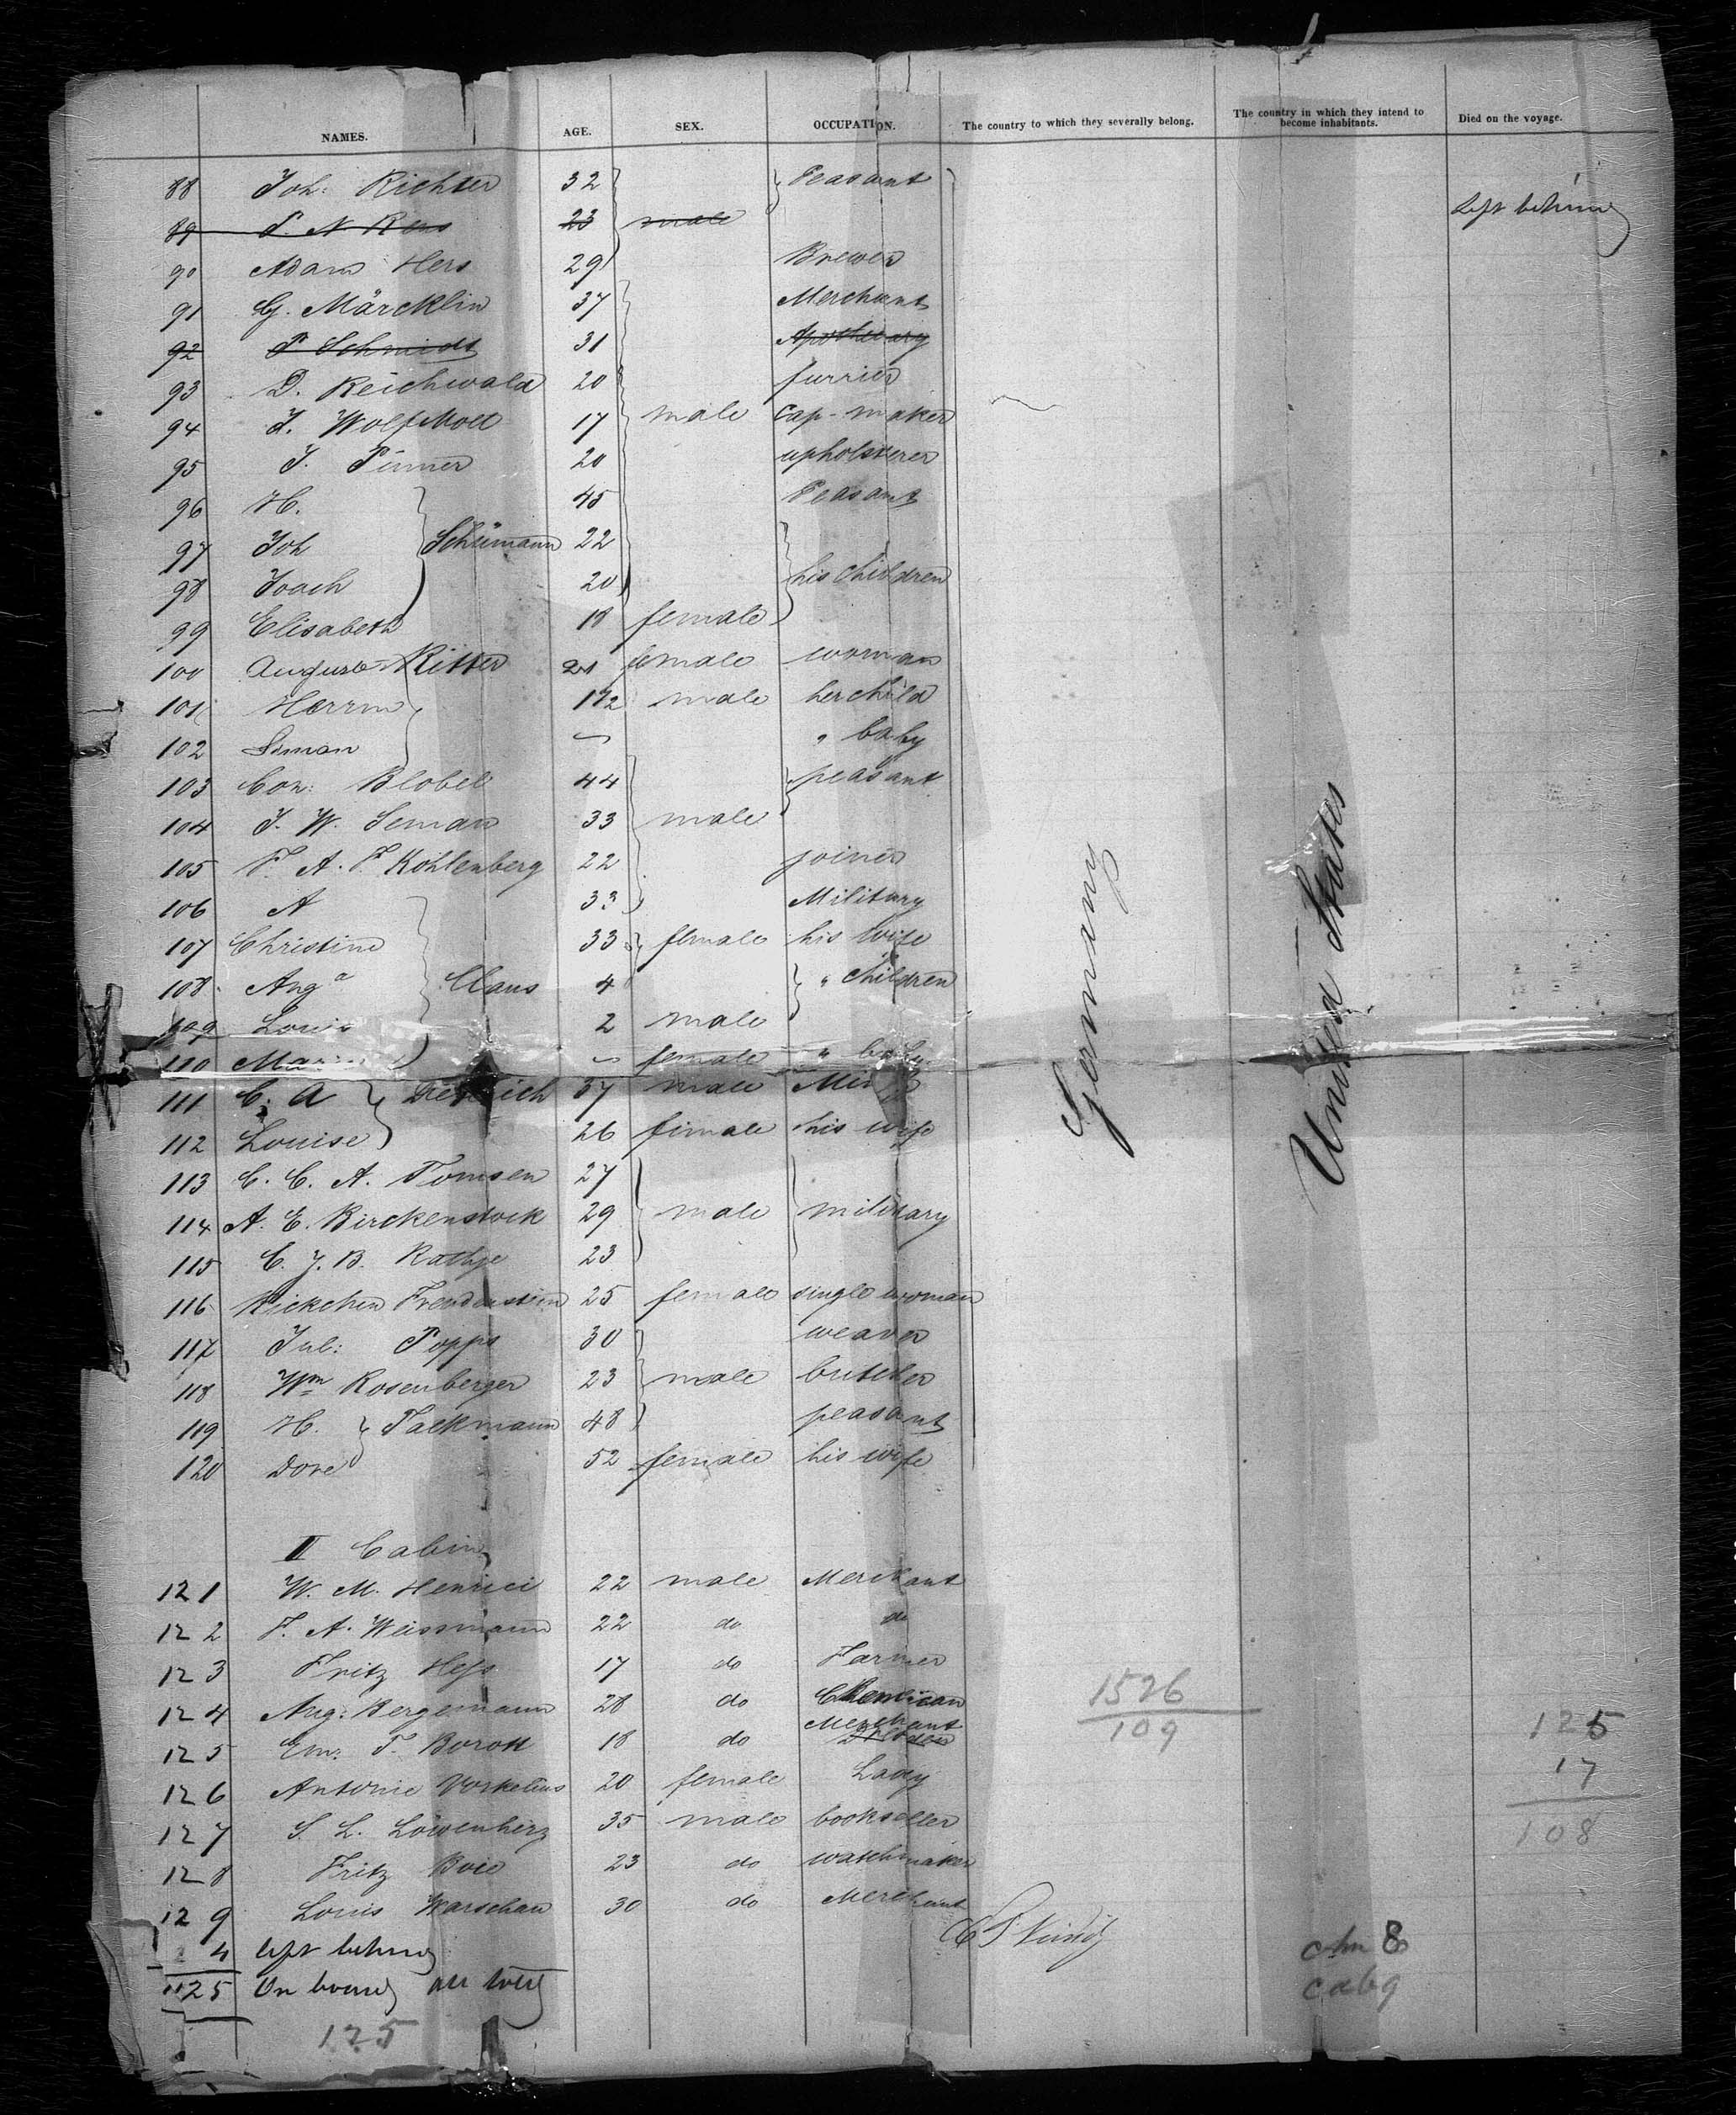 NAMES. AGE. SEX. OCCUPATION. The country to which they severally belong. The country in which they intend to become inhabitants. Died on the voyage.
88 Joh: Richter 32 Peasant
89 23 male left behind
90 Adam Hers 29 Brewer
91 G. Märcklin 37 Merchant
92 P Schmidt 31 Apothecary
93 D. Reichwald 20 furrier
94 17 male cap-maker
95 J. Pinner 20 upholsterer
96 H. 45 Peasant
97 Joh Schümann 22
98 Joach 20 his children
99 Elisabeth 18 female
100 Auguste Ritter 21 female woman
101 Herrm 1 1/2 male her child
102 Siman ~ " baby
103 Con: Blobel 44 peasant
104 J. W. Seman 33 male
105 F. A. F. Kohlenberg 22 joiner
106 A 33 Military
107 Christine 33 female his wife
108 Aug a Claus 4 " Children
109 Louis 2 male
110 ~ female " baby
111 C. A 37 male
112 Louise 26 female his wife
113 C. C. A. Tomsen 27
114 A. E. Birckenstock 29 male military
115 C. J. B. Rathje 23
116 Rickchen 25 female single woman
117 Jul: Popps 30 weaver
118 Wm Rosenberger 23 male butcher
119 H. Tackmann 48 peasant
120 Dore 52 female his wife
Germany
United States
II Cabin
121 W. M. Henrici 22 male Merchant
122 F. A. Weissmann 22 do do
123 Fritz Hess 17 do Farmer
124 Aug: Bergemann 28 do Chemican
125 Em. T. 18 do Merchant
126 Antonie 20 female Lady
127 S. L. Löwenherz 35 male bookseller
128 Fritz Boie 23 do watchmaker
129 Louis Warschau 30 do Merchant
4 left behind
125 On board all told
125
1526
109
125
17
108
8